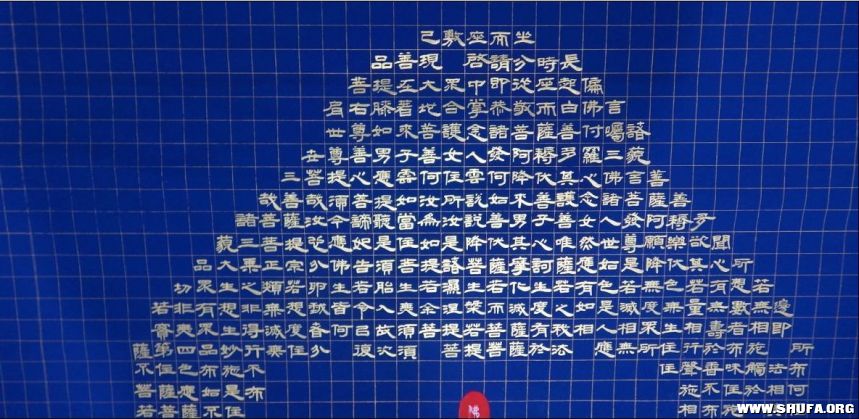 已敷座而坐
品善現 啓請分時長
菩提在大眾中即從座起偏
肩右膝著地合掌恭敬而白佛言
世尊如來善護念諸菩薩善付囑諸
世尊善男子善女人發阿耨多羅三藐
三菩提心應雲何住雲何降伏其心佛言善
哉善哉須菩提如汝所說如來善護念諸菩薩善
諸菩薩汝今諦聽當為汝說善男子善女人發阿耨多
藐三菩提心應如是住如是降伏其心唯然世尊願樂欲聞
品大乘正宗分佛告須菩提諸菩薩摩訶薩應如是降伏其心所
切眾生之類若卵生若胎生若濕生若化生若有色若無色若有想若
若非有想非無想我皆令入無余涅槃而滅度之如是滅度無量無數無邊
實無眾生得滅度者何以故須菩提若菩薩有我相人相眾生相壽者相即
薩第四品妙行無住分 復次須 菩提菩薩於法 應無所住行於布施 所
不住色布施不 住聲香味觸法布
菩薩應如是布 施不住於相何
若菩薩不住 相布施
WWW.SHUFA.ORG